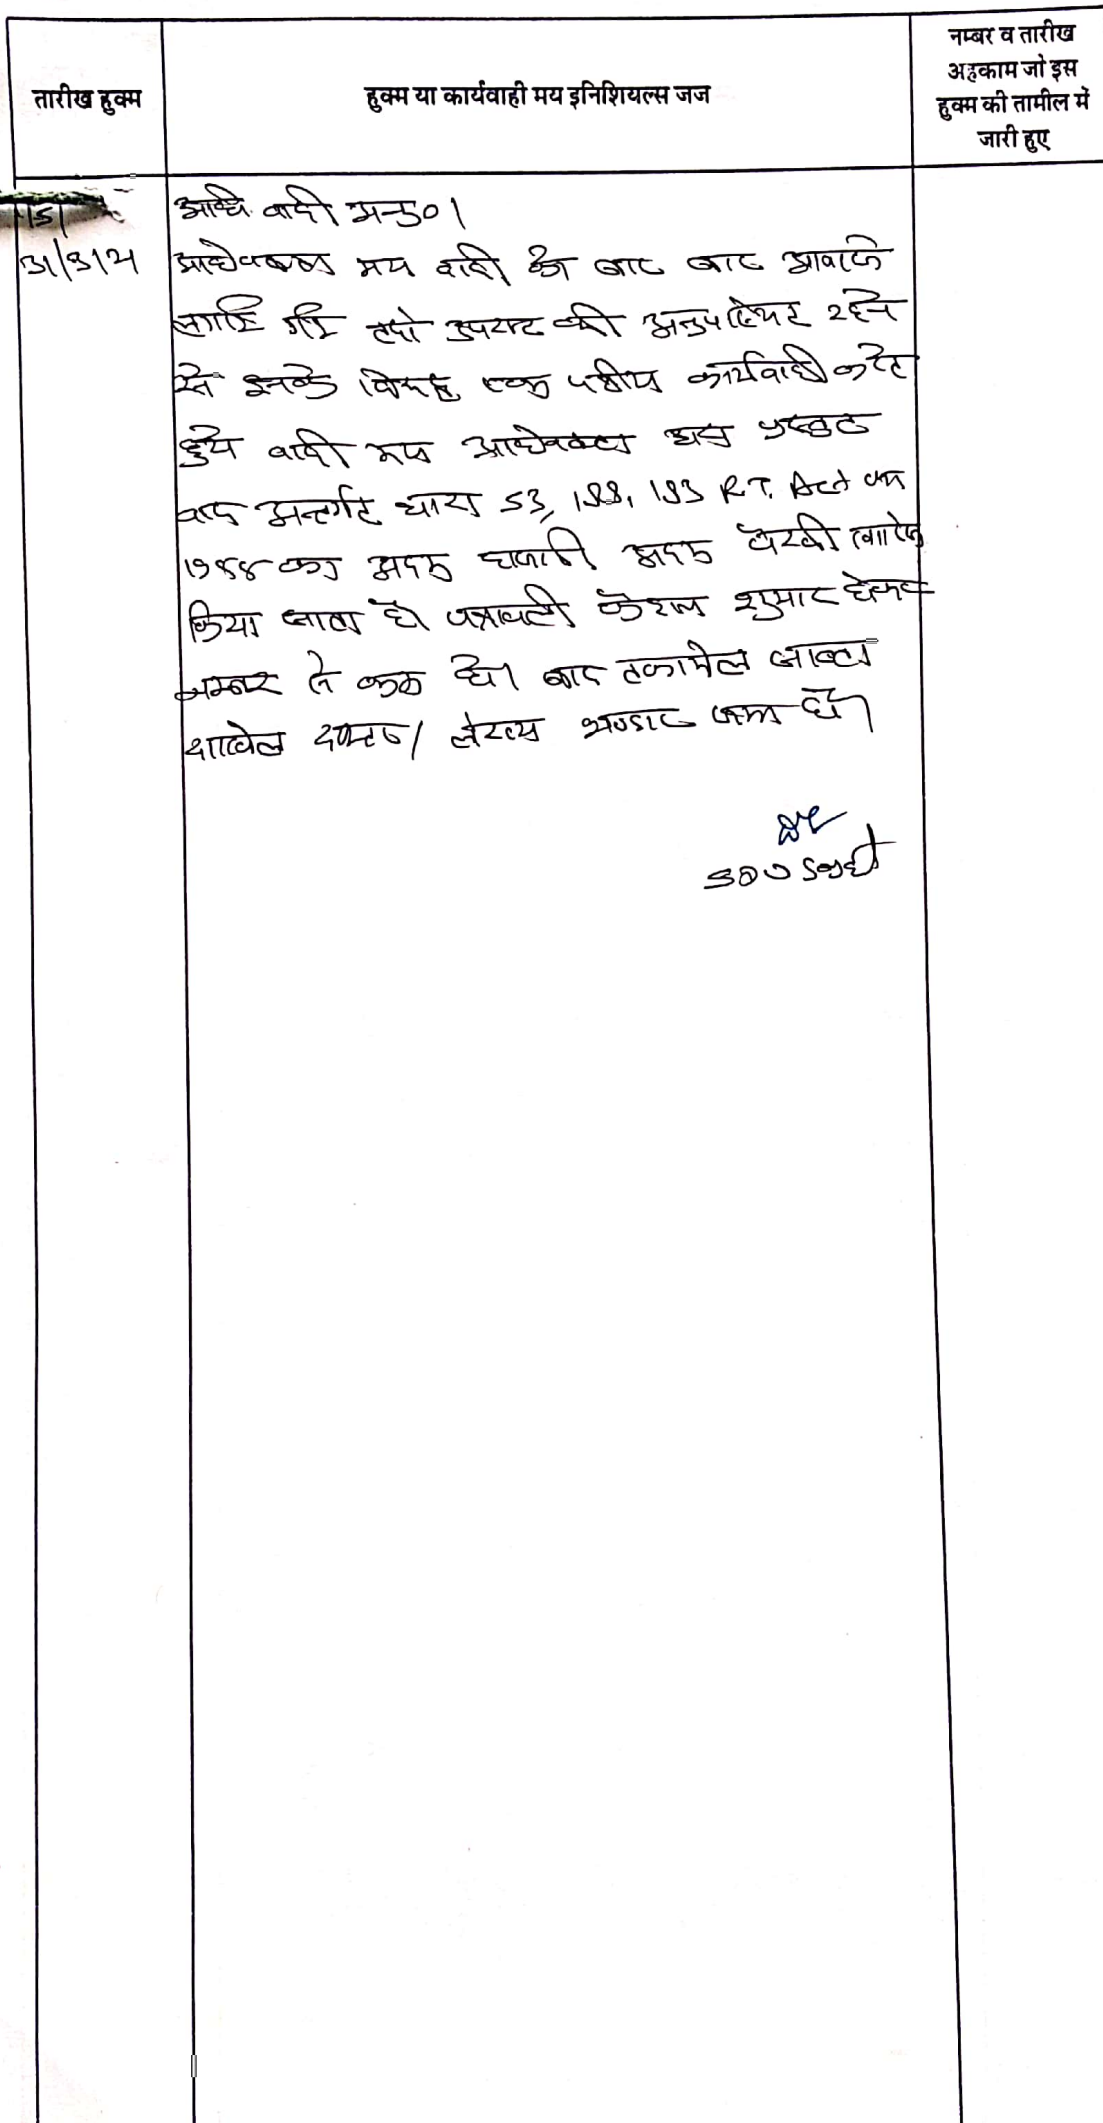 तारीख हुक्म
हुक्म या कार्यवाही मय इनिशियल्स जज
नम्बर व तारीख
अहकाम जो इस
हुक्म की तामील में
जारी हुए
अधि. वादी अनु०।
अधिवक्ता मय वादी को बार बार आवाजे
लगाई गई उपरांत भी अनुपस्थित रहने
से इनके विरुद्ध एक पक्षीय कार्यवाही करते
हुये वादी मय अधिवक्ता द्वारा प्रस्तुत
वाद अन्तर्गत धारा 53, 188, 183 R.T. Act
का अदम हाजरी अदम पैरवी खारिज
किया जाता है। पत्रावली फैशल शुमार होकर
नम्बर से कम हो। बाद तकमील जाब्ता
दाखिल दफ्तर/ लेख्य भण्डार जमा हो।